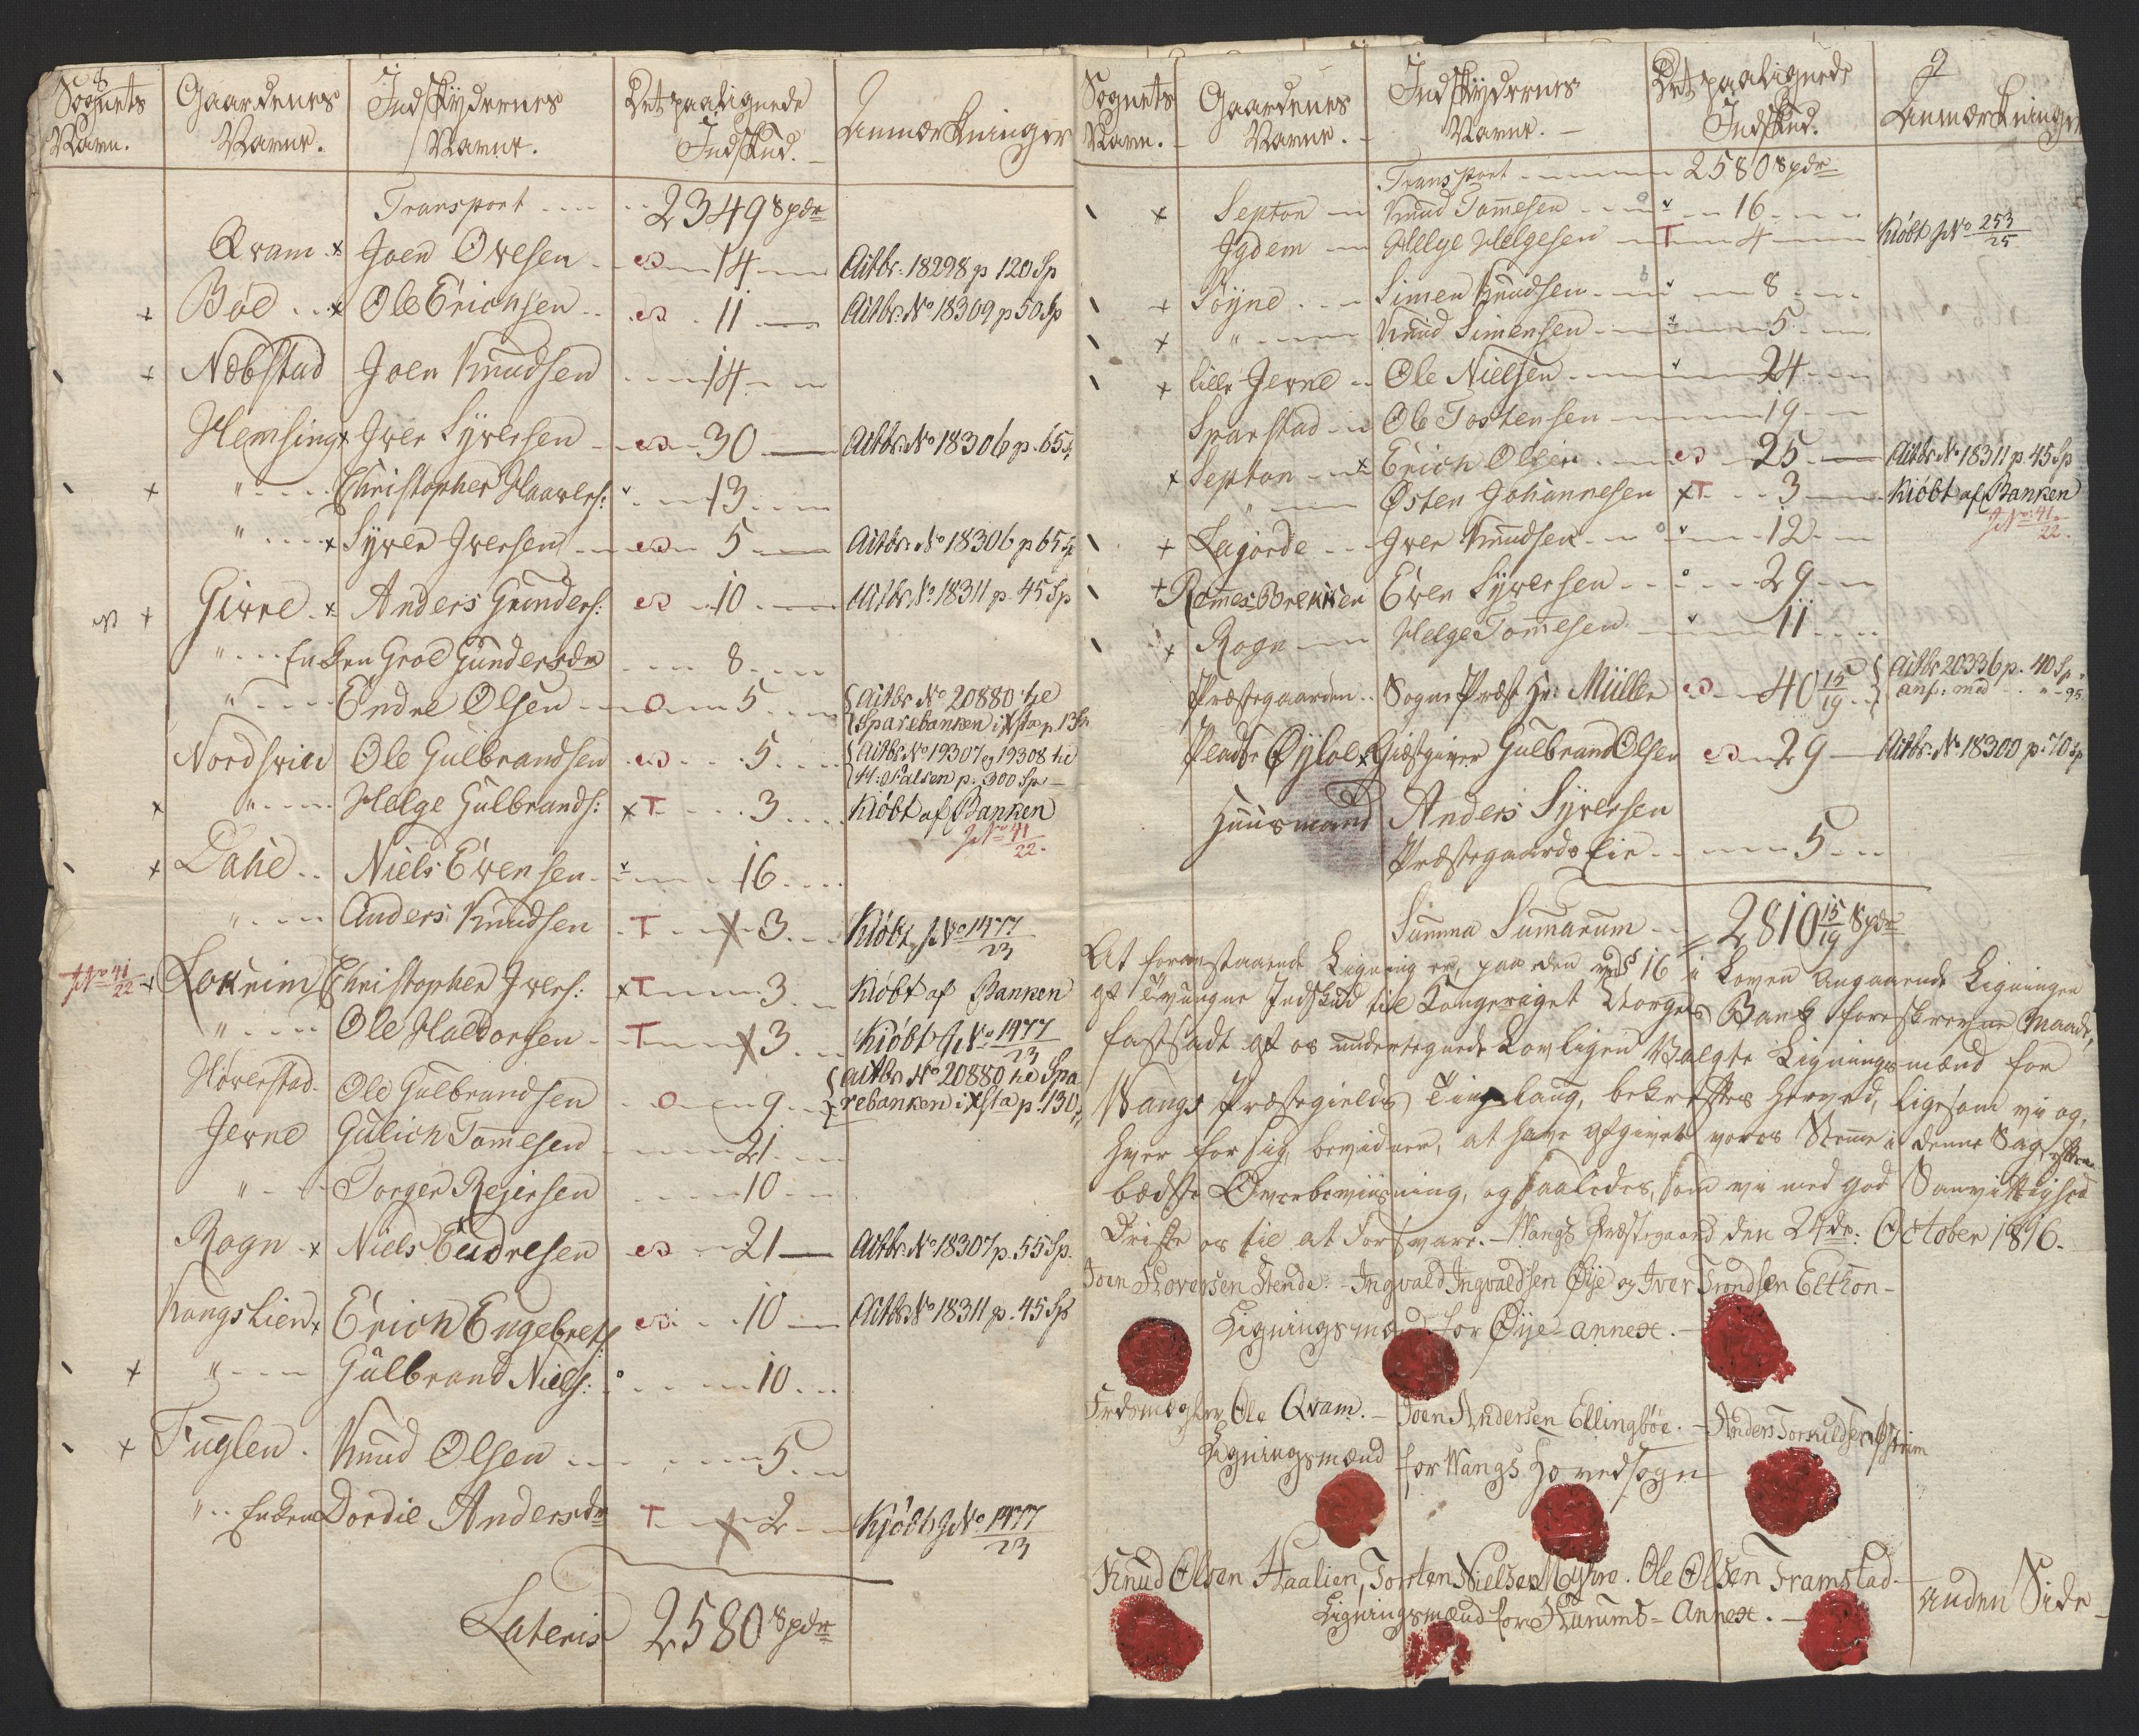 8
Sognets Navn. Gaardenes Navne. Indskydernes Navne. Det paalignede Indskud. Anmærkninger
Transport 2349 Spdr
Qvam x Joen Ovesen 14 Actbr. 18298 p 120 Sp
x Böe x Ole Erichsen 11 Actbr. No 18309 p 50 Sp
x Nebstad Joen Knudsen 14
Hemsing x Iver Syversen 30 Actbr. No 18306 p. 65 Sp
x " Christopher Haavers: 13
" x Syver Iversen 5 Actbr. No 18306 p 65 Sp
x Girre x Anders Gunders: 10 Actbr. No 18311 p. 45 Sp
" Enken Groe Gundersdr 8
" Endre Olsen O 5 Actbr No 20880 til
Sparebanken i Xsta p. 13 Sp
Nordsvien Ole Gulbrandsen 5 Actbr No 19307 og 19308 til
H. Falsen p. 300 Sp
x " Helge Gulbrands: x T 3 Kiöbt af Banken
JNo 41/22.
x Dahle Niels Evensen 16
" Anders Knudsen T x 3 Kiöbt JNo 1477/23
JNo 41/22 x Lokrim Christopher Ivers: x T 3 Kiöbt af Banken
" Ole Haldorsen T x 3 Kiöbt JNo 1477/23
Höverstad Ole Gulbrandsen O 9 Actbr No 20880 til Spa
rebanken i Xsta p. 130
Jevne Gulich Tommesen 21
" Torger Rejersen 10
Rogn x Niels Endresen 21 Actbr. No 18307 p. 55 Sp.
Kongslien x Erich Engebrets: 10 Actbr No 18311 p. 45 Sp
x " Gulbrand Niels: 10
x Fuglen Knud Olsen 5
" Enken Dordie Andersdr T x 2 Kjöbt JNo 1477/23
Lateris 2580 Spdr
9
Sognets Navn. Gaardenes Navne. Indskydernes Navne. Det paalignede Indskud. Anmærkninger
Transport 2580 Spdr
x Septon Knud Tommesen 16
Igdem Helge Helgesen T 4 Kiöbt JNo 253/25
x Söyne Simen Knudsen 8
x " Knud Simensen 5
x Lille Jevne Ole Nielsen 24
Sparstad Ole Tostensen 19
x Septon x Erich Olsen 25 Actbr No 18311 p. 45 Sp
" Østen Johannesen x T 3 Kiöbt af Banken
JNo 41/22.
x Lajorde Iver Knudsen 12
x Rommes Brekken Even Syversen 29
x Rogn Helge Tommesen 11
Præstegaarden Sogne Præst Hr: Müller 40 15/19 Actbr 20336 p. 40 Sp.
anf: med " 95
Pladse Øyloe x Giæstgiver Gulbrand Olsen 29 Actbr. No 18300 p. 70 Sp
Huusmand Anders Syversen
Præstegaards Eie 5
Summa Sumarum 2810 15/19 Spdr
At foranstaaende Ligning er, paa den ved § 16 i Loven angaaende Ligningen
af tvungne Indskud til Kongeriget Norges Bank foreskrevne Maade,
fastsadt af os undertegnede Lovligen Valgte Ligningsmænd for
Wangs Præstegields Tinglaug, bekræftes herved, ligesom vi og,
hver for sig, bevidner, at have afgivet vores Stemme i denne Sag efter
bedste Overbeviisning, og saaledes, som vi med god Samvittighed
Driste os til at Forsvare. - Wangs Præstegaard den 24de: October 1816.
Joen Thoresen Stende: - Ingvald Ingvaldsen Øije og Iver Trondsen Elthon -
Ligningsmænd for Øije annex. -
Fredsmægler Ole Qvam. - Joen Andersen Ellingböe. - Anders Torkildsen Østrim
Ligningsmænd for Wangs Hovedsogn
Knud Olsen Haalien, Torsten Nielsen Myhre. Ole Olsen Framstad -
Ligningsmænd for Hurums - Annex. -
Anden Side